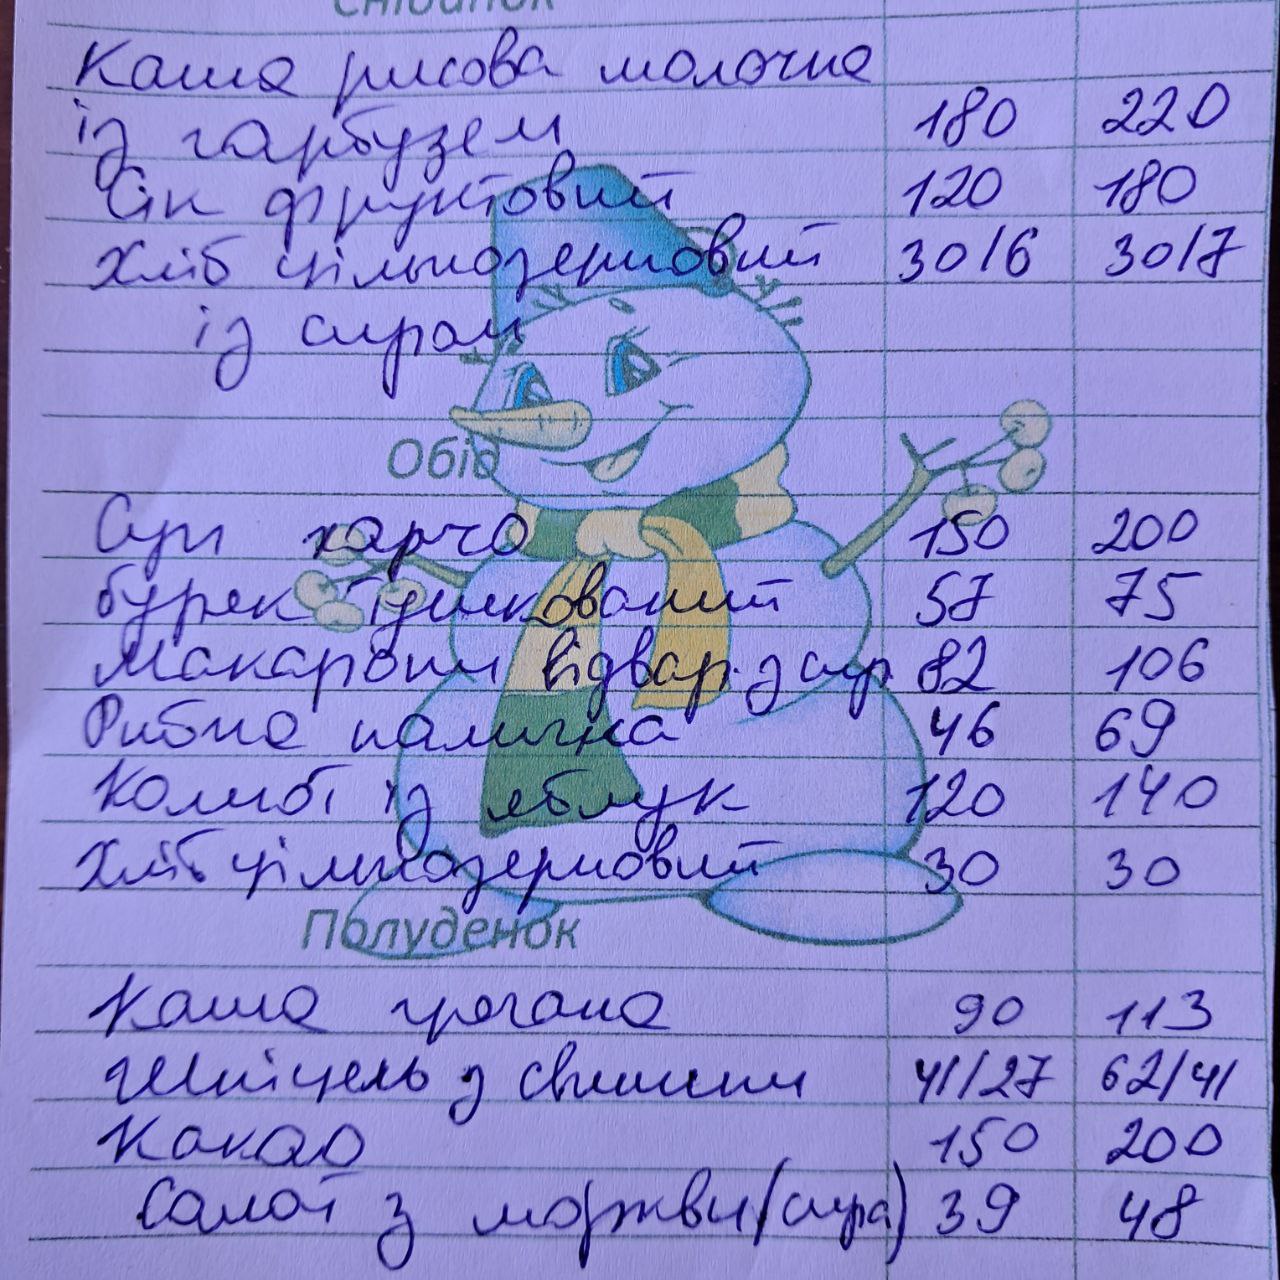 Сніданок
Каша рисова молочна
із гарбузем 180 220
Сік фруктовий 120 180
Хліб цільнозерновий 30/6 30/7
із сиром
Обід
Суп харчо 150 200
буряк тушкований 57 75
Макарони відвар. з сир. 82 106
Рибна паличка 46 69
Компот із яблук 120 140
Хліб цільнозерновий 30 30
Полуденок
Каша гречана 90 113
Шніцель з свинини 41/27 62/41
Какао 150 200
Салат з моркви (сира) 39 48